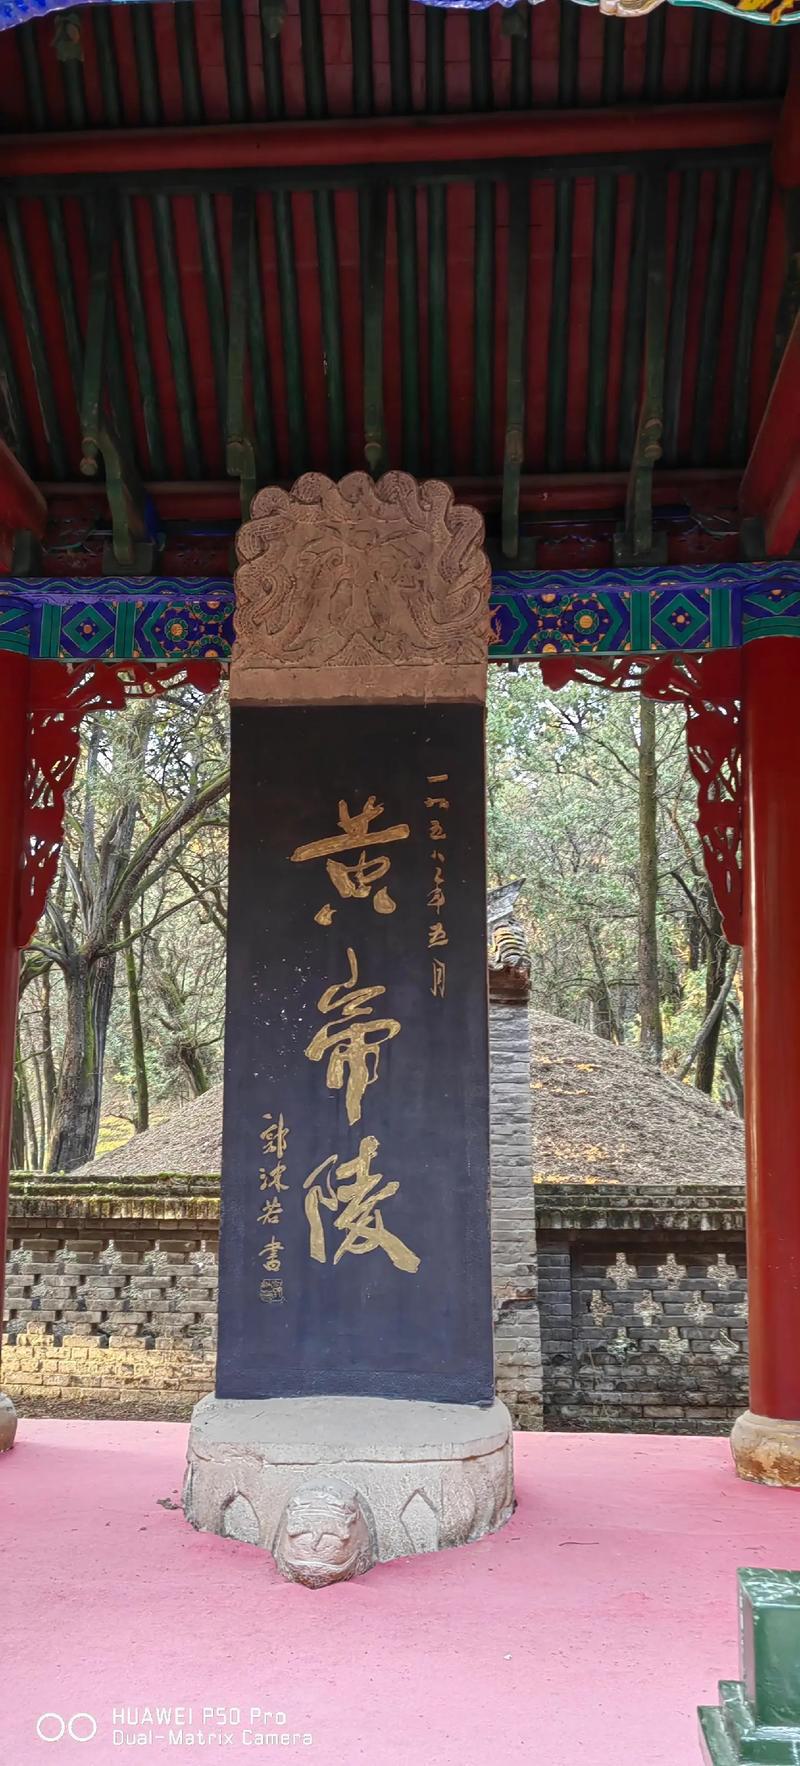 一九五八年五月
黄帝陵
郭沫若書
HUAWEI P50 Pro
Dual-Matrix Camera